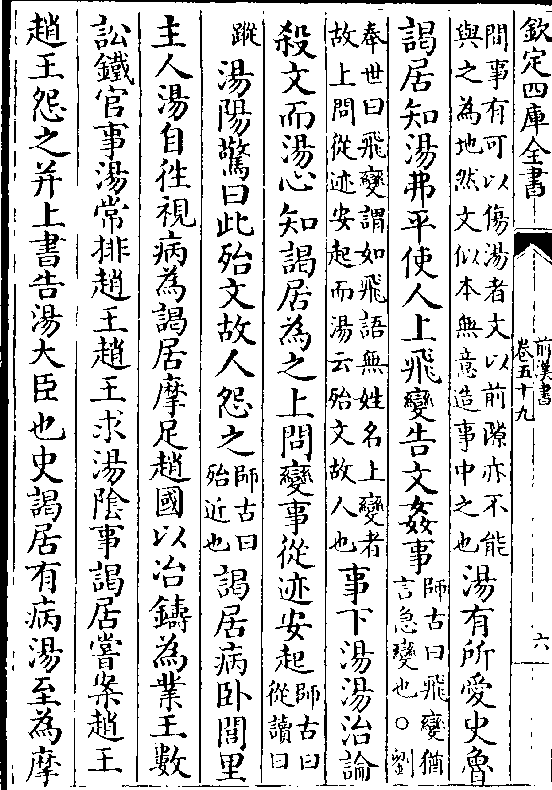 欽定四庫全書
前漢書
卷五十九
六
間事有可以傷湯者文以前隙亦不能
與之為地然文似本無意造事中之也
湯有所愛史魯
謁居知湯弗平使人上飛變告文姦事
師古曰飛變猶
言急變也○劉
奉世曰飛變謂如飛語無姓名上變者
故上問從迹安起而湯云殆文故人也
事下湯湯治論
殺文而湯心知謁居為之上問變事從迹安起
師古曰
從讀曰
蹤
湯陽驚曰此殆文故人怨之
師古曰
殆近也
謁居病卧閭里
主人湯自徃視病為謁居摩足趙國以冶鑄為業王數
訟鐵官事湯常排趙王趙王求湯陰事謁居嘗案趙王
趙王怨之并上書告湯大臣也史謁居有病湯至為摩